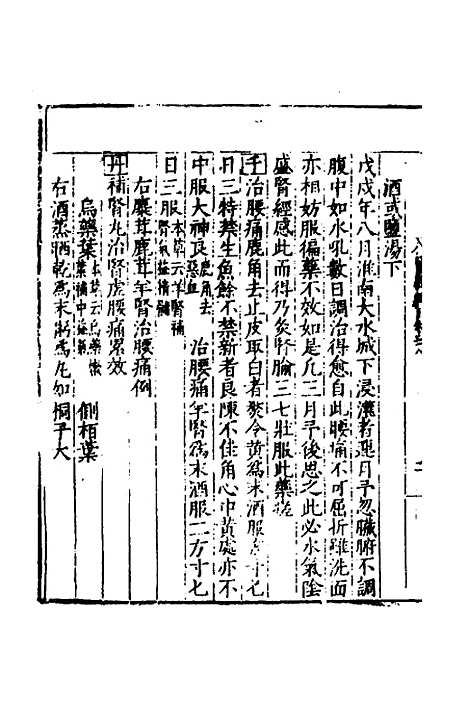 酒或鹽湯下
戊戌年八月淮南大水城下浸灌者連月予忽臟腑不調
腹中如水吼數日調治得愈自此腰痛不可屈折雖洗面
亦相妨服徧藥不效如是凡三月予後思之此必水氣陰
盛腎經感此而得乃灸腎腧三七壯服此藥瘥
千治腰痛鹿角去上皮取白者熬令黃為末酒服方寸七
日三特禁生魚餘不禁新者良陳不佳角心中黃處亦不
中服大神良 鹿角去惡血 治腰痛羊腎為末酒服二方寸七
日三服 本草云羊腎補腎氣益精髓
右麋茸鹿茸羊腎治腰痛例
丹補腎丸治腎虛腰痛累效
烏藥葉 側栢葉
右酒蒸晒乾為末粥為丸如桐子大